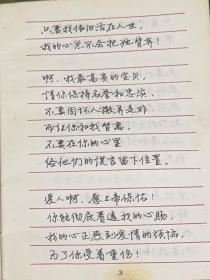 只要我依旧活在人世,
我的心总不会把她背弃!
啊,我最高贵的宝贝
请你保持名誉和忠实,
不要因坏人搬弄是非
而让你和我背离,
不要在你的心里
给他们的谎言留下位置。
爱人啊,愿上帝保佑!
你能彻底看透我的心肠,
我的心正感到爱情的烦恼,
为了你受着重伤!
3